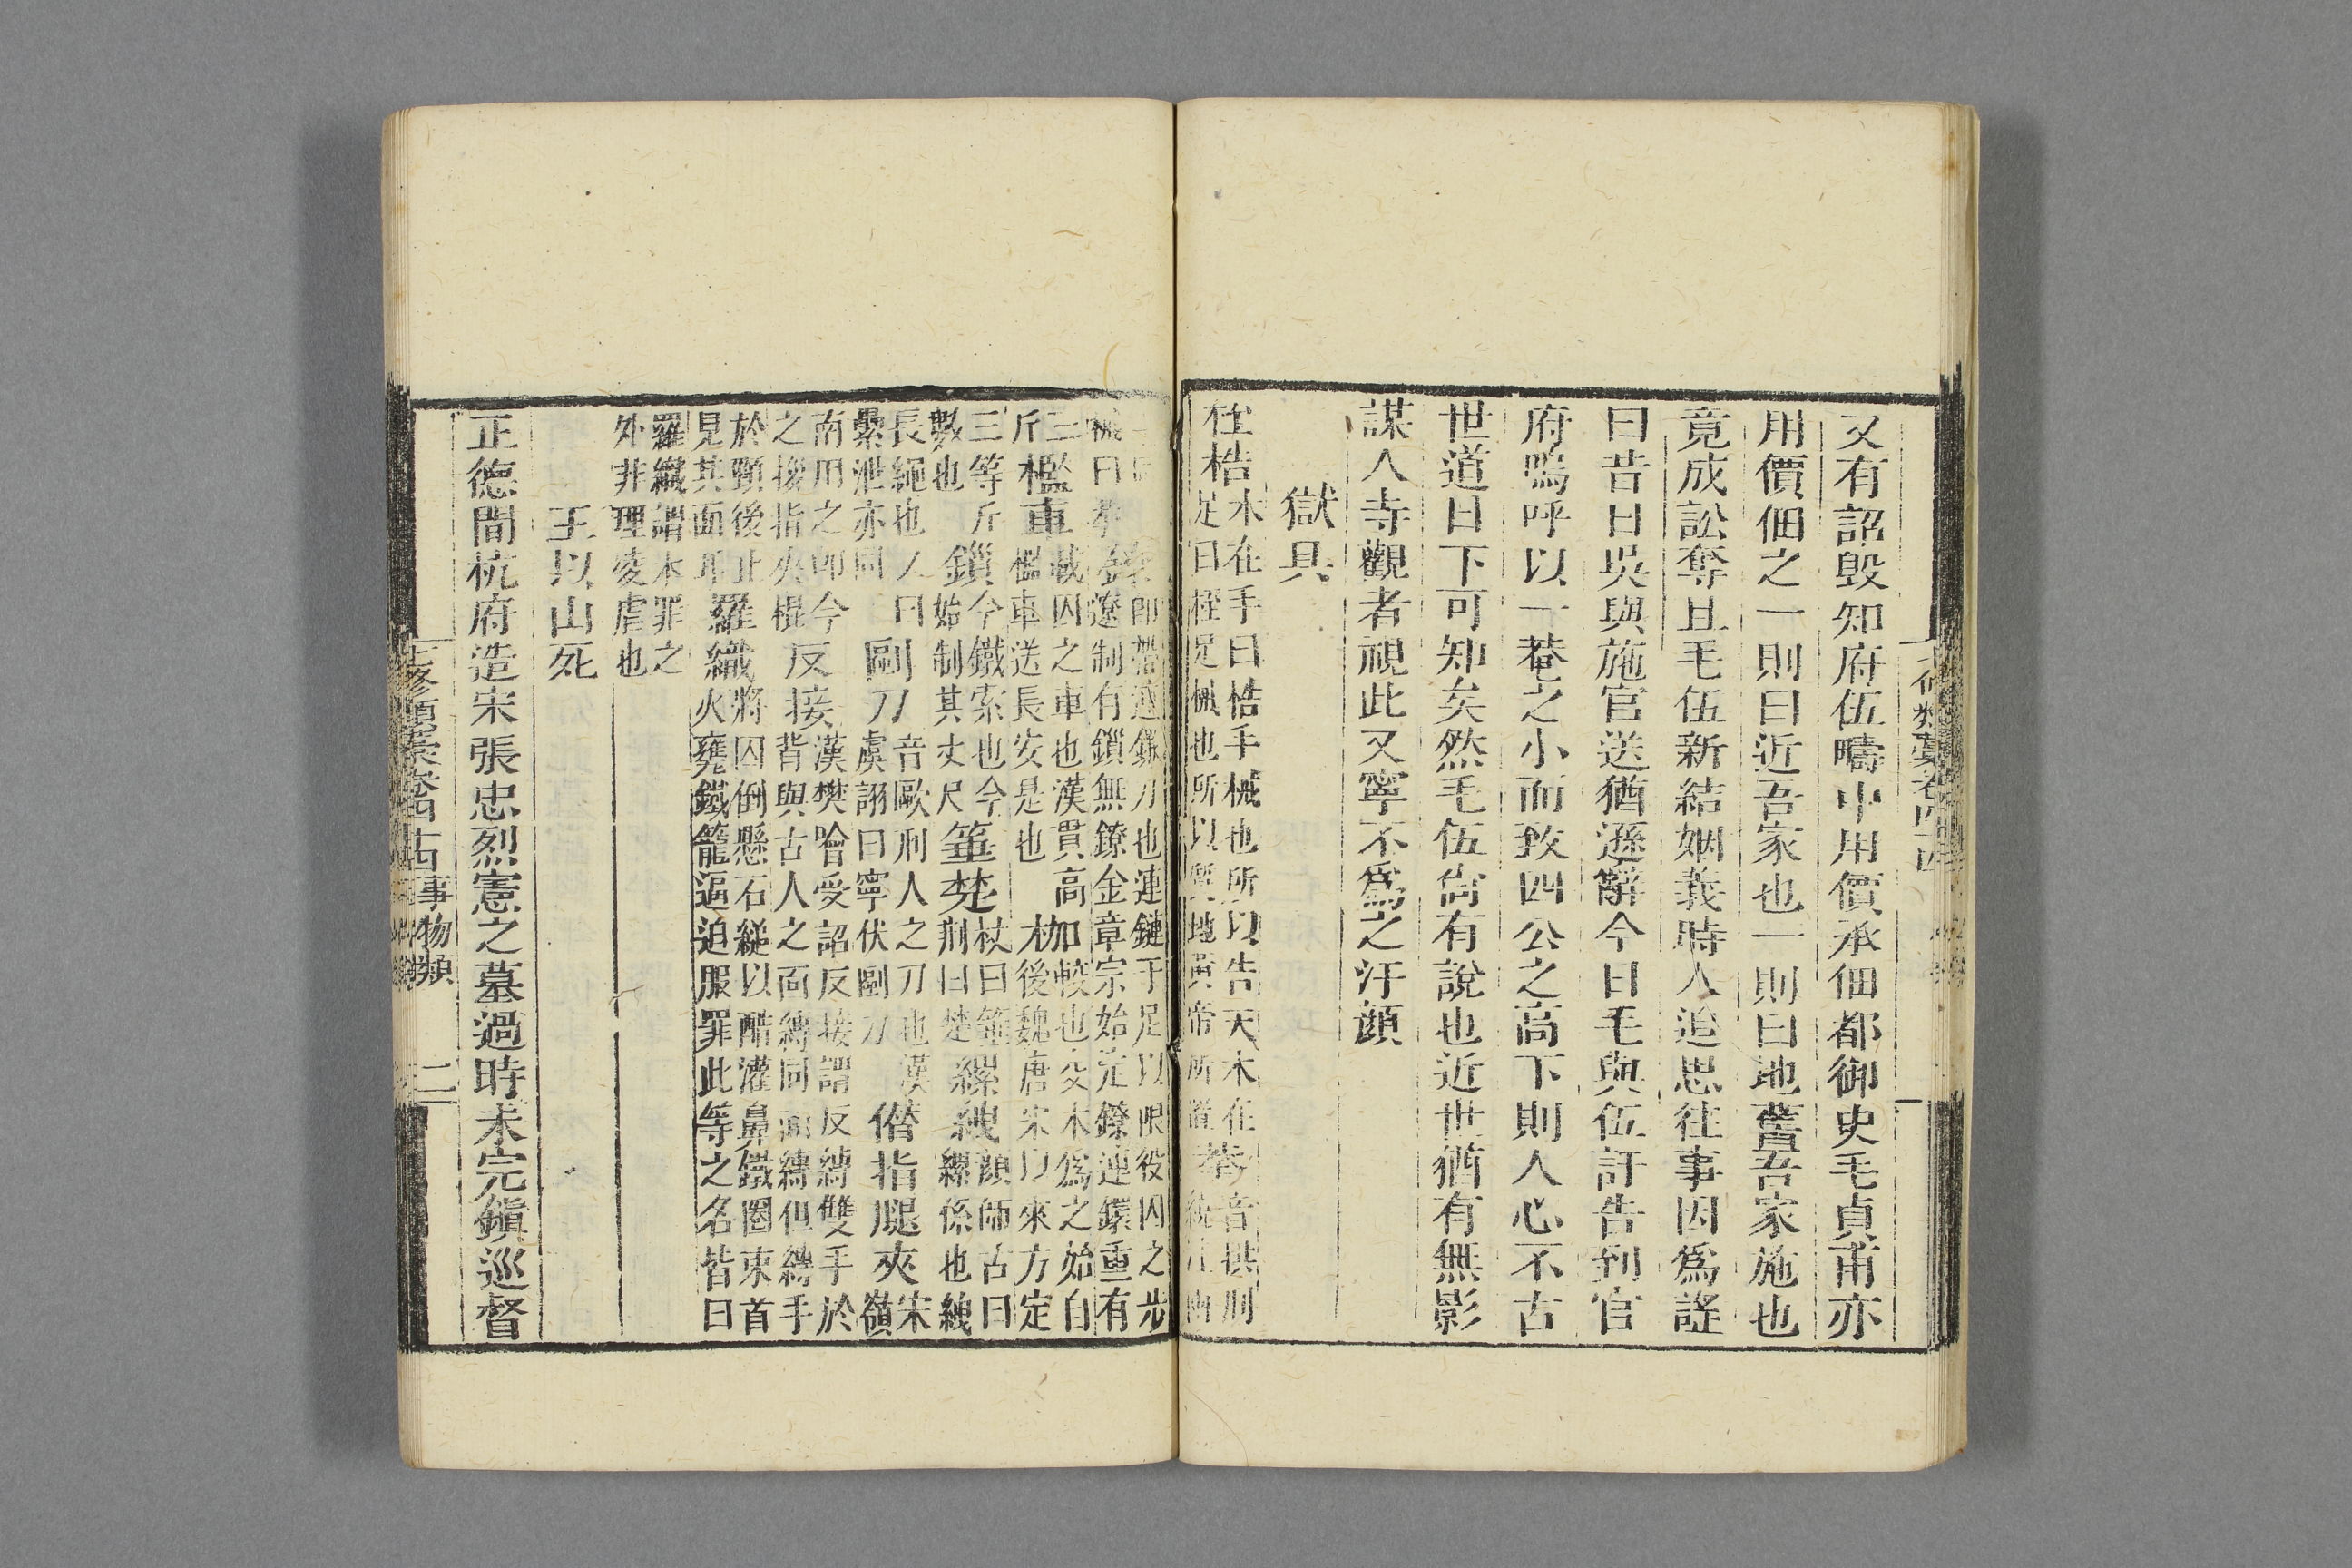 又有詔毀知府伍疇中用價承佃都御史毛貞甫亦
用價佃之一則曰近吾家也一則曰地舊吾家施也
竟成訟奪且毛伍新結姻義時人追思往事因爲謠
曰昔日吳與施官送猶遜辭今日毛與伍訐告到官
府嗚呼以一菴之小而致四公之高下則人心不古
世道日下可知矣然毛伍尙有說也近世猶有無影
謀人寺觀者視此又寧不爲之汗顔
獄具
桎梏
木在手曰梏手械也所以告天木在
足曰桎足械也所以質地黃帝所造
拲
音拱刑
統
械曰拲
鐐
卽
連鏈于足以限役囚之步
遼制有鎖無鐐金章宗始定鐐連鐶重有
三
斤
檻車
載囚之車也漢貫高
檻車送長安是也
枷
較也交木爲之始自
後魏唐宋以來方定
三等斤
數也
鎖
今鐵索也今
始制其丈尺
箠楚
杖曰箠
荆曰楚
縲絏
顔師古曰
縲係也絏
長繩也人曰
纍泄亦同
剾刀
音歐刑人之刀也漢
虞詡曰寧伏剾刀
偕指腿夾
宋
嶺
南用之卽今
之拶指夾棍
反接
漢樊噲受詔反接謂反縛雙手於
背與古人之面縛同面縛但縛手
於頸後止
見其面耳
羅織
將囚倒懸石縋以酷灌鼻鐵圈束首
火甕鐵籠逼迫服罪此等之名皆曰
羅織謂本罪之
外非理凌虐也
王以山死
正德間杭府造宋張忠烈憲之墓過時未完鎭巡督
七修類藁卷四十四 事物類 二